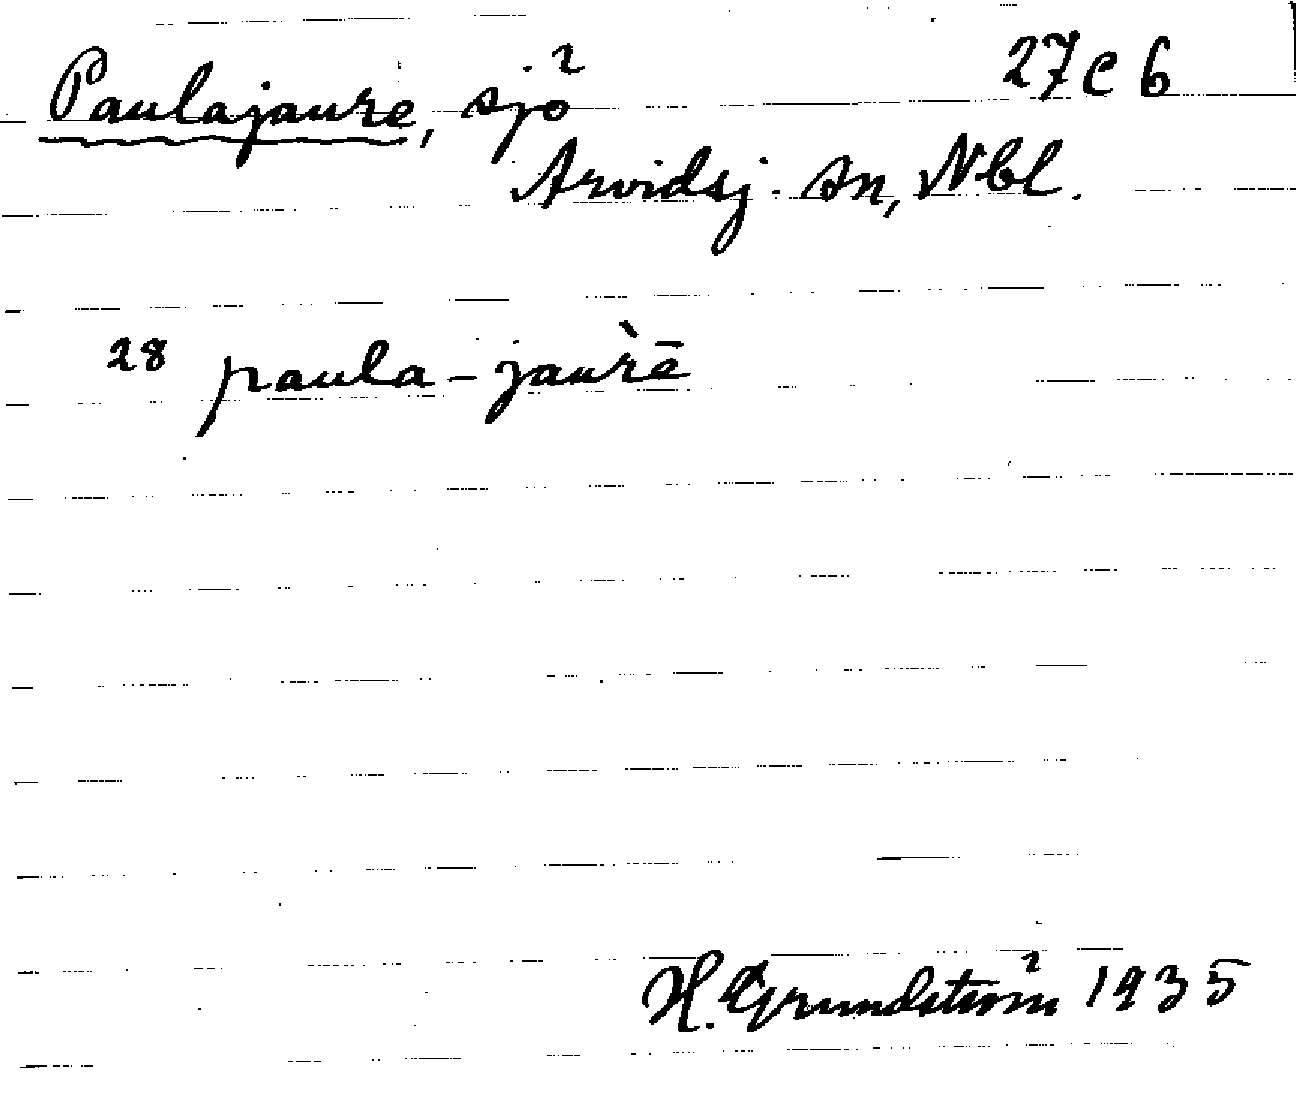 Paulajaure, sjö 27 C 6
Arvidsj. sn, Nbl.
28 paula-jaùrē
H. Grundström 1935